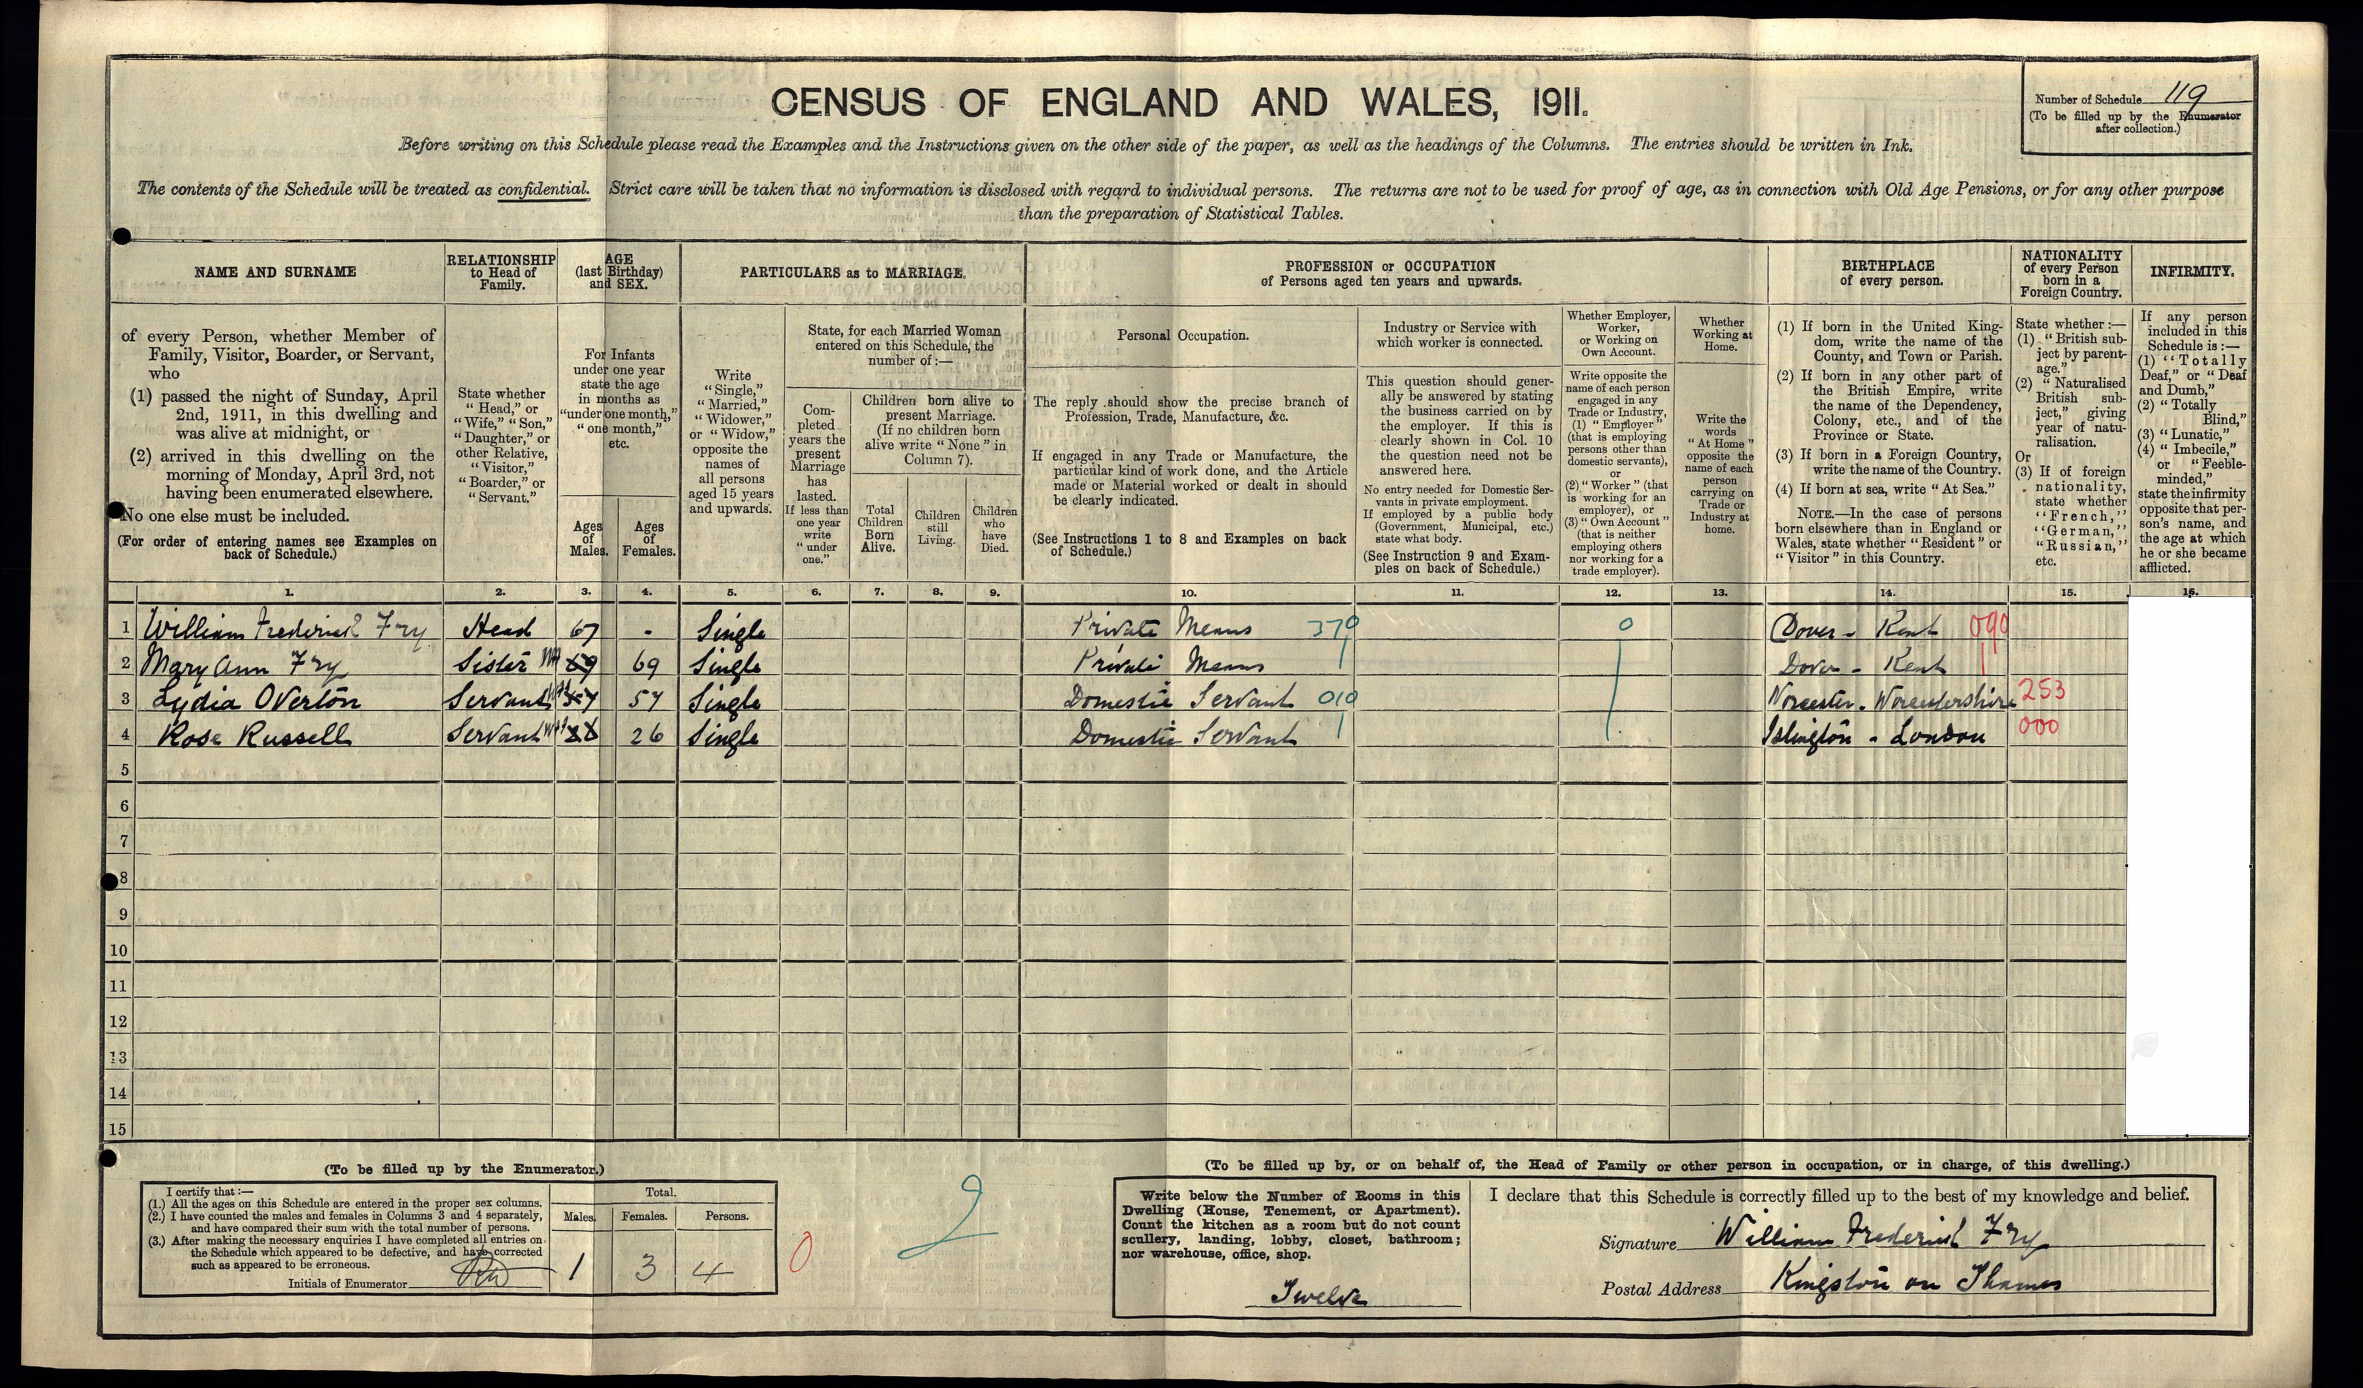 CENSUS OF ENGLAND AND WALES, 1911.
Number of Schedule 119
(To be filled up by the Enumerator
after collection.)
Before writing on this Schedule please read the Examples and the Instructions given on the other side of the paper, as well as the headings of the Columns. The entries should be written in Ink.
The contents of the Schedule will be treated as confidential. Strict care will be taken that no information is disclosed with regard to individual persons. The returns are not to be used for proof of age, as in connection with Old Age Pensions, or for any other purpose
than the preparation of Statistical Tables.
NAME AND SURNAME
of every Person, whether Member of
Family, Visitor, Boarder, or Servant,
who
(1) passed the night of Sunday, April
2nd, 1911, in this dwelling and
was alive at midnight, or
(2) arrived in this dwelling on the
morning of Monday, April 3rd, not
having been enumerated elsewhere.
No one else must be included.
(For order of entering names see Examples on
back of Schedule.)
RELATIONSHIP
to Head of
Family.
State whether
"Head," or
"Wife," "Son,"
"Daughter," or
other Relative,
"Visitor,"
"Boarder," or
"Servant."
AGE
(last Birthday)
and SEX.
For Infants
under one year
state the age
in months as
"under one month,"
"one month,"
etc.
Ages
of
Males.
Ages
of
Females.
PARTICULARS as to MARRIAGE.
Write
"Single,"
"Married,"
"Widower,"
or "Widow,"
opposite the
names of
all persons
aged 15 years
and upwards.
State, for each Married Woman
entered on this Schedule, the
number of :—
Com-
pleted
years the
present
Marriage
has
lasted.
If less than
one year
write
"under
one."
Children born alive to
present Marriage.
(If no children born
alive write "None" in
Column 7).
Total
Children
Born
Alive.
Children
still
Living.
Children
who
have
Died.
PROFESSION or OCCUPATION
of Persons aged ten years and upwards.
Personal Occupation.
The reply should show the precise branch of
Profession, Trade, Manufacture, &c.
If engaged in any Trade or Manufacture, the
particular kind of work done, and the Article
made or Material worked or dealt in should
be clearly indicated.
(See Instructions 1 to 8 and Examples on back
of Schedule.)
Industry or Service with
which worker is connected.
This question should gener-
ally be answered by stating
the business carried on by
the employer. If this is
clearly shown in Col. 10
the question need not be
answered here.
No entry needed for Domestic Ser-
vants in private employment.
If employed by a public body
(Government, Municipal, etc.)
state what body.
(See Instruction 9 and Exam-
ples on back of Schedule.)
Whether Employer,
Worker,
or Working on
Own Account.
Write opposite the
name of each person
engaged in any
Trade or Industry,
(1) "Employer"
(that is employing
persons other than
domestic servants),
or
(2) "Worker" (that
is working for an
employer), or
(3) "Own Account"
(that is neither
employing others
nor working for a
trade employer).
Whether
Working at
Home.
Write the
words
"At Home"
opposite the
name of each
person
carrying on
Trade or
Industry at
home.
BIRTHPLACE
of every person.
(1) If born in the United King-
dom, write the name of the
County, and Town or Parish.
(2) If born in any other part of
the British Empire, write
the name of the Dependency,
Colony, etc., and of the
Province or State.
(3) If born in a Foreign Country,
write the name of the Country.
(4) If born at sea, write "At Sea."
NOTE.—In the case of persons
born elsewhere than in England or
Wales, state whether "Resident" or
"Visitor" in this Country.
NATIONALITY
of every Person
born in a
Foreign Country.
State whether :—
(1) "British sub-
ject by parent-
age."
(2) "Naturalised
British sub-
ject," giving
year of natu-
ralisation.
Or
(3) If of foreign
nationality,
state whether
"French,"
"German,"
"Russian,"
etc.
INFIRMITY.
If any person
included in this
Schedule is :—
(1) "Totally
Deaf," or "Deaf
and Dumb,"
(2) "Totally
Blind,"
(3) "Lunatic,"
(4) "Imbecile,"
or "Feeble-
minded,"
state the infirmity
opposite that per-
son's name, and
the age at which
he or she became
afflicted.
1. 2. 3. 4. 5. 6. 7. 8. 9. 10. 11. 12. 13. 14. 15. 16.
1 William Frederick Fry Head 67 - Single Private Means 370 0 Dover - Kent 090
2 Mary Ann Fry Sister 69 69 Single Private Means Dover - Kent
3 Lydia Overton Servant 57 57 Single Domestic Servant 010 Worcester - Worcestershire 253
4 Rose Russell Servant 26 Single Domestic Servant Islington - London 000
5
6
7
8
9
10
11
12
13
14
15
(To be filled up by the Enumerator.)
I certify that :—
(1.) All the ages on this Schedule are entered in the proper sex columns.
(2.) I have counted the males and females in Columns 3 and 4 separately,
and have compared their sum with the total number of persons.
(3.) After making the necessary enquiries I have completed all entries on
the Schedule which appeared to be defective, and have corrected
such as appeared to be erroneous.
Initials of Enumerator
Total.
Males. Females. Persons.
1 3 4
0
2
(To be filled up by, or on behalf of, the Head of Family or other person in occupation, or in charge, of this dwelling.)
Write below the Number of Rooms in this
Dwelling (House, Tenement, or Apartment).
Count the kitchen as a room but do not count
scullery, landing, lobby, closet, bathroom;
nor warehouse, office, shop.
Twelve
I declare that this Schedule is correctly filled up to the best of my knowledge and belief.
Signature William Frederick Fry
Postal Address Kingston on Thames